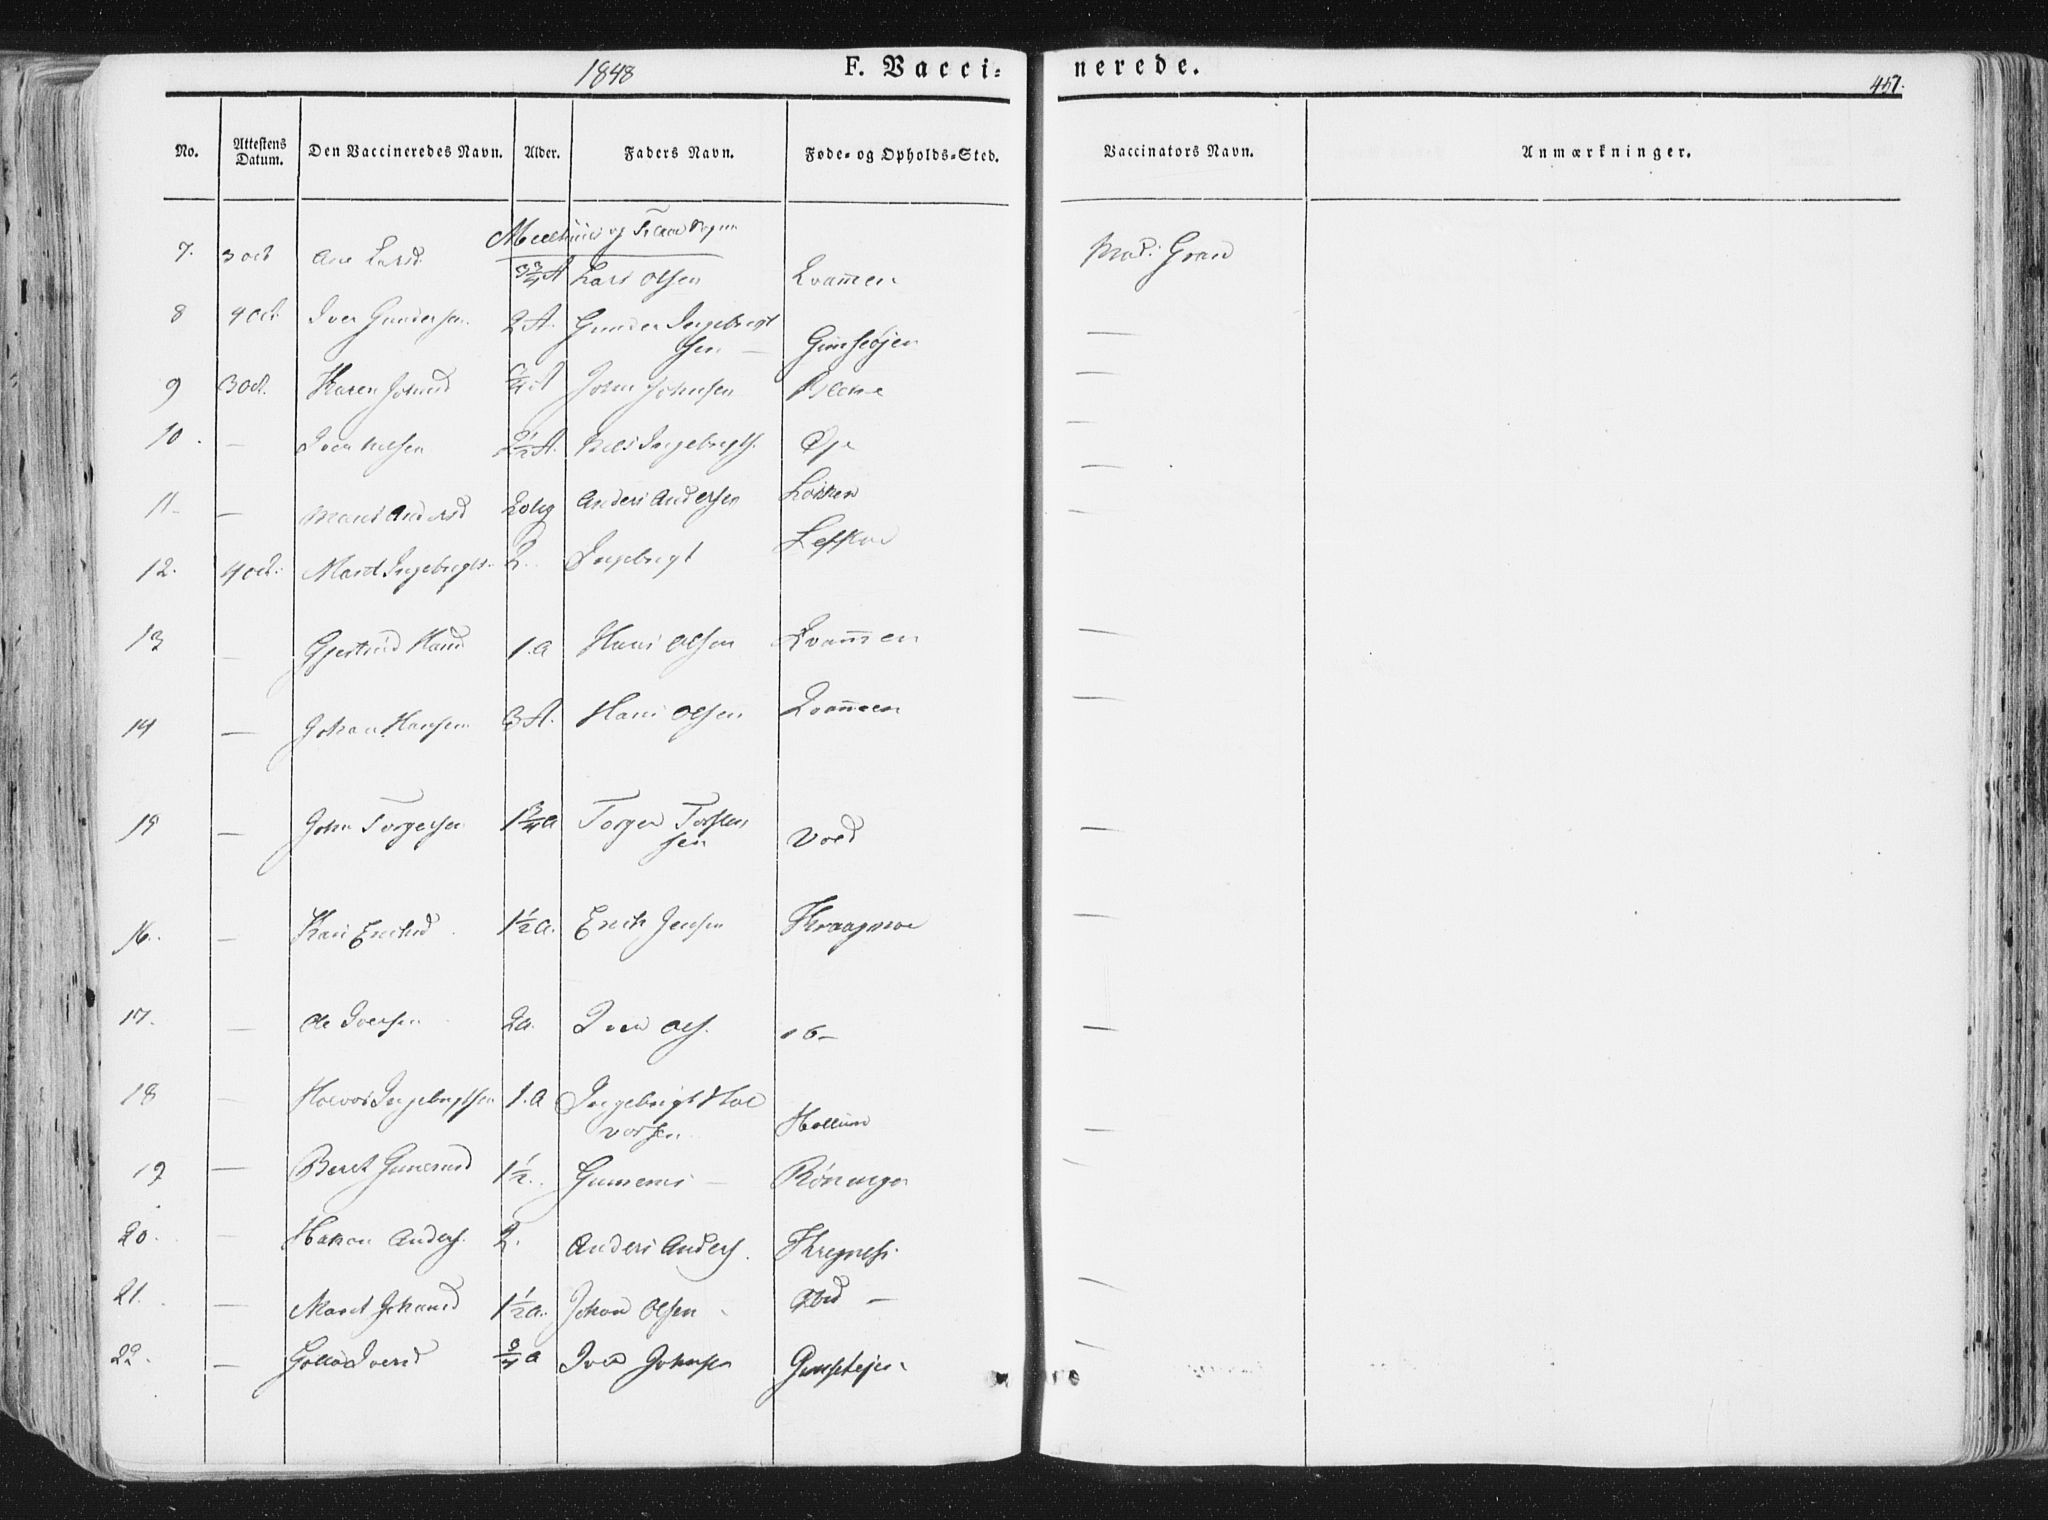 1848 F. Vacci= nerede. 451.
No. Attestens Datum. Den Vaccineredes Navn. Alder. Faders Navn. Føde= og Opholds=Sted. Vaccinators Navn. Anmærkninger.
Meelhuus og Flaae Sogne
7. 3 Oct Ane Larsd. 3 3/4 A Lars Olsen Qvammen Mad: Gran
8 4 Oct. Iver Gundersen 2 A. Gunder Ingebrigt
sen — Gimseøjen —
9 3 Oct. Karen Johnsd A John Johnsen —
10. — Iver Nilsen 2 1/2 A. Nils Ingebrigts. Øje —
11 — Marit Andersd Anders Andersen Løkken —
12. 4 Oct: Marit Ingebrigts. 2. Ingebrigt
13 — Gjertrud Hansd 1. a Hans Olsen Qvammen —
14 — Johan Hansen 3 A. Hans Olsen Qvammen —
15 — John Torgersen 1 3/4 a Torger Torsten
sen Vold —
16. — Kari Erichsd 1 1/2 a. Erich Jensen Kraagmoe —
17. — Ole Iversen 2a. Iver Ols. ib — —
18 — Halvor Ingebrigtsen 1. a Ingebrigt Hal
vorsen Hollum —
19 — Beret Gunersd 1 1/2. Guneris — —
20. — Hakon Anders. 2. Anders Anders. Kregnes.
21. — Marit Johansd 1 1/2 a. Johan Olsen — —
22. — Iversd 3/4 a Iver Johnsen —